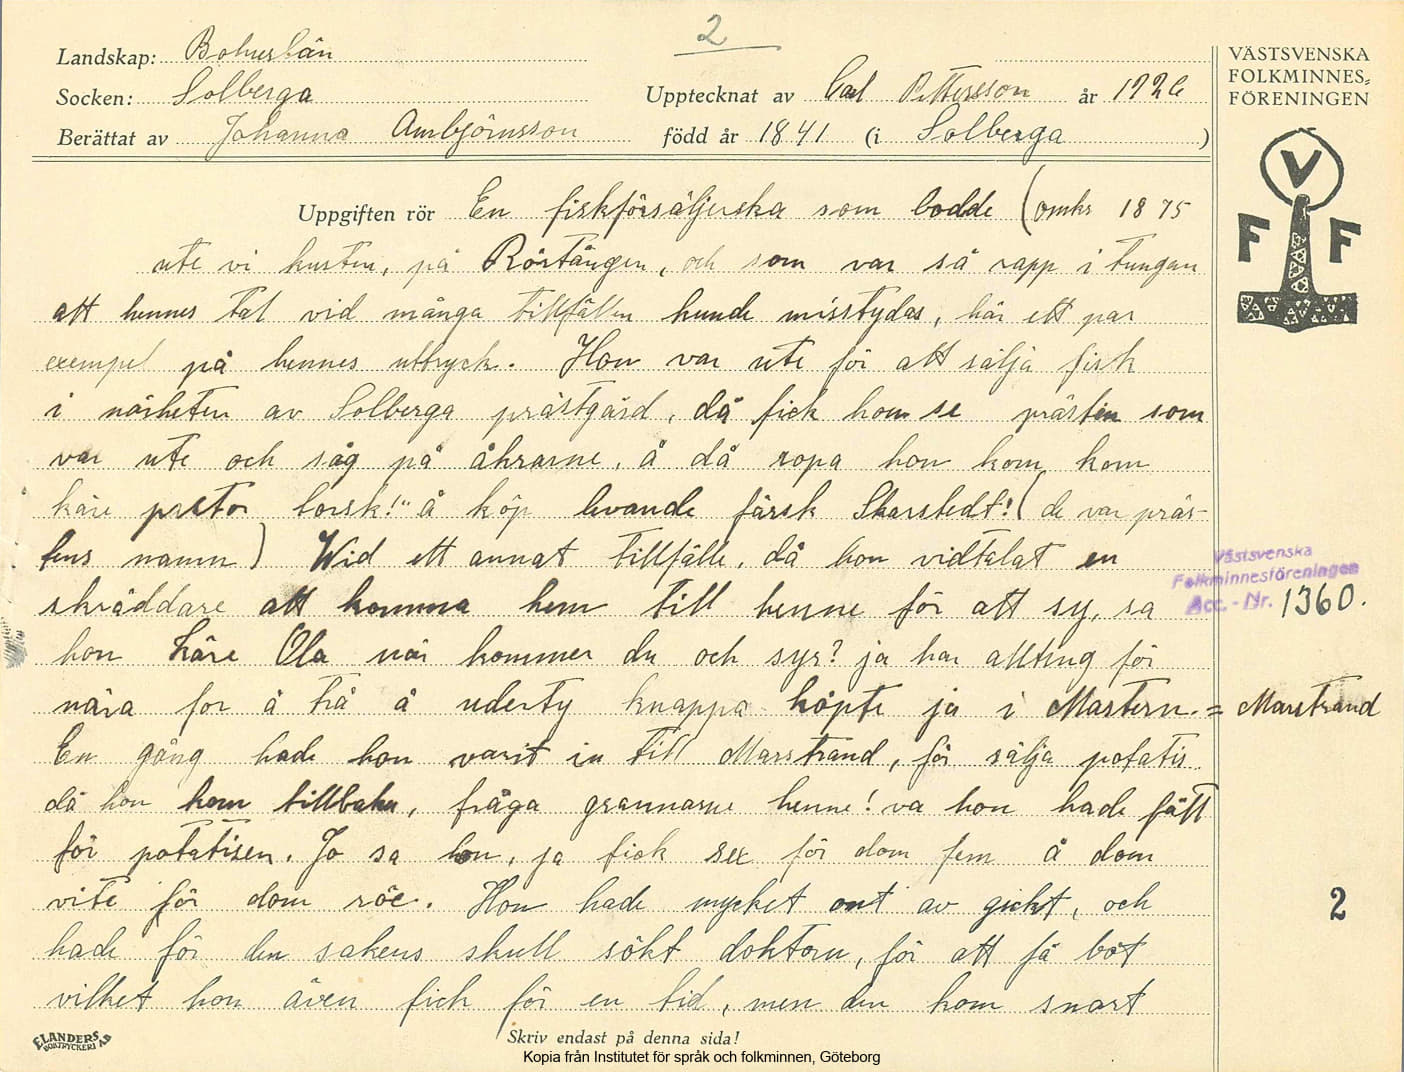 2
Landskap: Bohuslän
Socken: Solberga
Upptecknat av Carl Pettersson år 1926
Berättat av Johanna Ambjörnsson
född år 1841 (i Solberga)
VÄSTSVENSKA
FOLKMINNES-
FÖRENINGEN
V
F F
Uppgiften rör En fiskförsäljerska som bodde (omkr 1875
ute vi kusten, på Rörtången, och som var så rapp i tungan
att hennes tal vid många tillfällen kunde misstydas, här ett par
exempel på hennes uttryck. Hon var ute för att sälja fisk
i närheten av Solberga prästgård, då fick hon se prästen som
var ute och såg på åkrarne, å då ropa hon kom, kom
käre pastor torsk!" å köp levande färsk Skarstedt! (de var präs-
tens namn) Wid ett annat tillfälle, då hon vidtalat en
skräddare att komma hem till henne för att sy, sa
hon käre Ola när kommer du och syr? ja har allting för
nära for å trå å uderty knappa köpte ja i Mastern. = Marstrand
En gång hade hon varit in till Marstrand, för sälja potatis
då hon kom tillbaka, fråga grannarne henne! va hon hade fått
för potatisen. Jo sa hon, ja fick sex för dom fem å dom
vite för dom röe. Hon hade mycket ont av gickt, och
hade för den sakens skull sökt doktorn, för att få bot
vilket hon även fick för en tid, men den kom snart
Västsvenska
Folkminnesföreningen
Acc.-Nr. 1360.
2
ELANDERS
BOKTRYCKERI AB
Skriv endast på denna sida!
Kopia från Institutet för språk och folkminnen, Göteborg